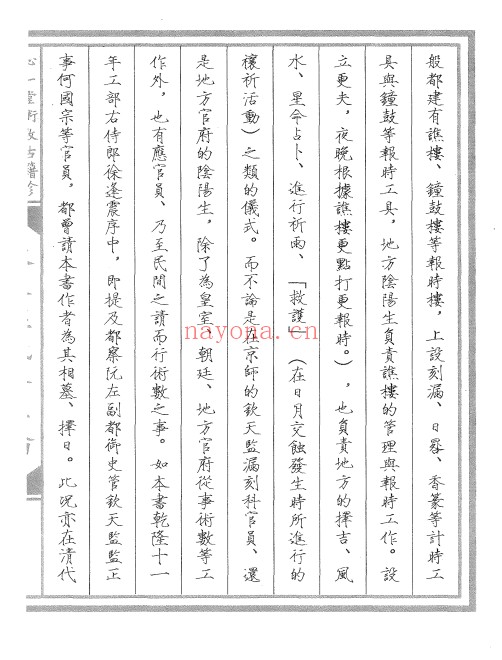 般都建有譙樓、鐘鼓樓等報時樓，上設刻漏、日晷、香篆等計時工
具與鐘鼓等報時工具，地方陰陽生負責譙樓的管理與報時工作。設
立更夫，夜晚根據譙樓更點打更報時。），也負責地方的擇吉、風
水、星命占卜、進行祈雨、「救護」（在日月交蝕發生時所進行的
禳祈活動）之類的儀式。而不論是在京師的欽天監漏刻科官員、還
是地方官府的陰陽生，除了為皇室、朝廷、地方官府從事術數等工
作外，也有應官員、乃至民間之請而行術數之事。如本書乾隆十一
年工部右侍郎徐逢震序中，即提及都察院左副都御史管欽天監監正
事何國宗等官員，都曾請本書作者為其相墓、擇日。此況亦在清代
心一堂術數古籍珍
nayona.cn